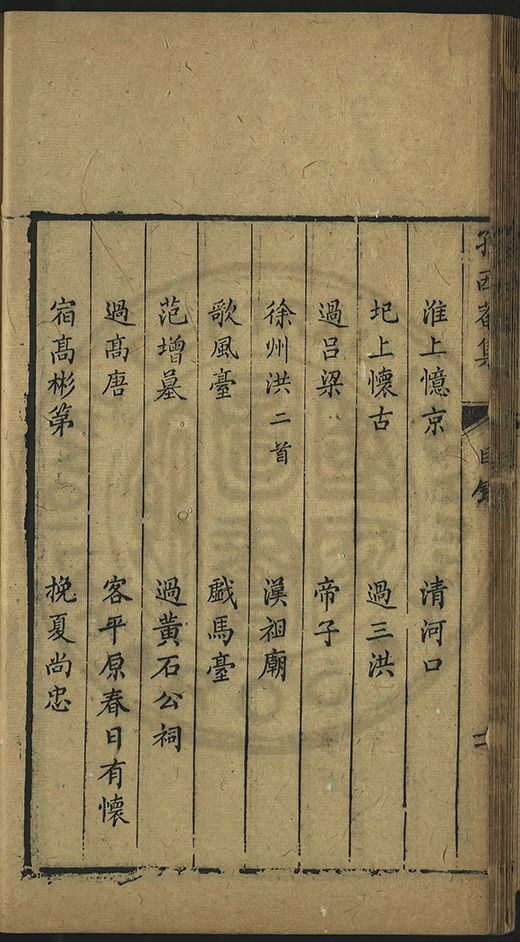 孫西菴集 目錄 二
淮上憶京 清河口
圯上懷古 過三洪
過呂梁 帝子
徐州洪二首 漢祖廟
歌風臺 戯馬臺
范增墓 過黃石公祠
過高唐 客平原春日有懷
宿高彬第 挽夏尚忠